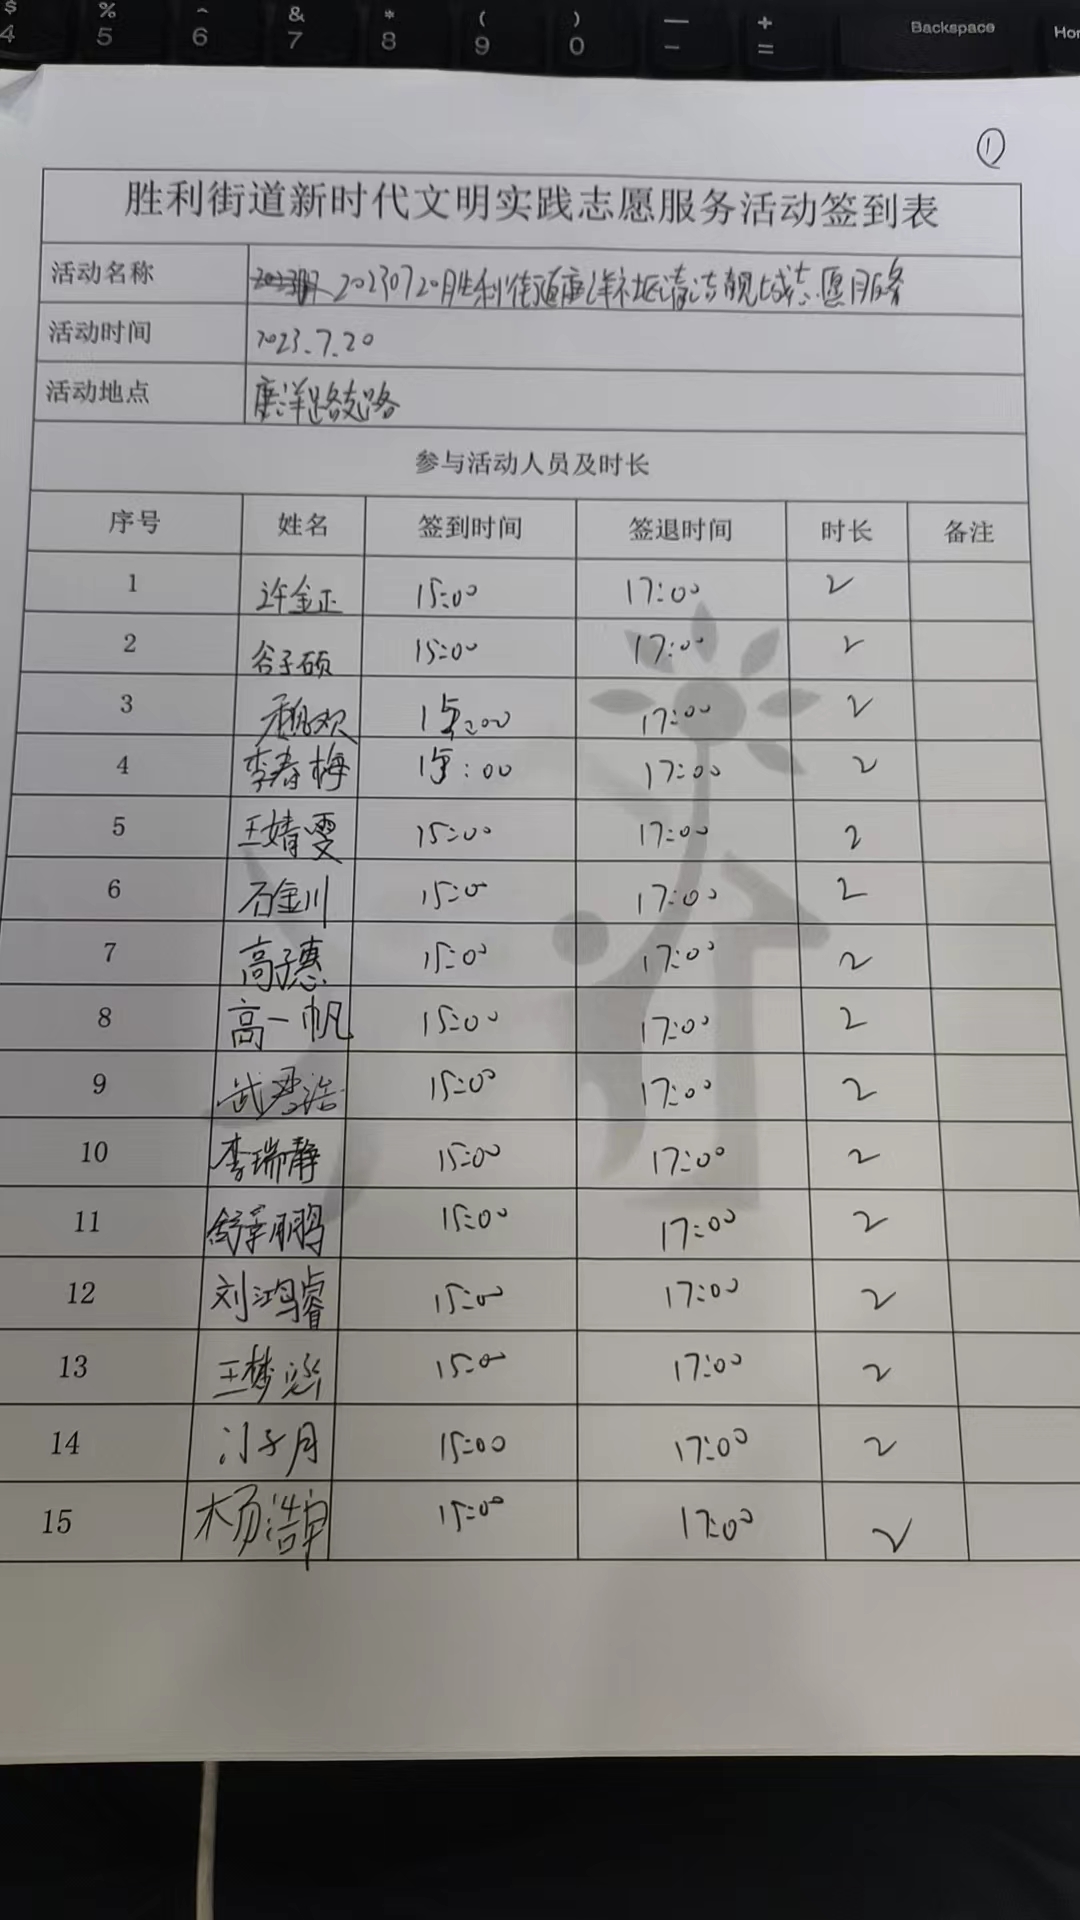 $ % ^ & * ( ) — +
4 5 6 7 8 9 0 - = Backspace Hom
①
胜利街道新时代文明实践志愿服务活动签到表
活动名称 20230720胜利街道唐洋社区清洁靓城志愿服务
活动时间 2023.7.20
活动地点 唐洋路支路
参与活动人员及时长
序号 姓名 签到时间 签退时间 时长 备注
1 许金正 15:00 17:00 2
2 谷子硕 15:00 17:00 2
3 15:00 17:00 2
4 李春梅 15:00 17:00 2
5 王婧雯 15:00 17:00 2
6 石金川 15:00 17:00 2
7 高子惠 15:00 17:00 2
8 高一帆 15:00 17:00 2
9 武君浩 15:00 17:00 2
10 李瑞静 15:00 17:00 2
11 舒莘鹏 15:00 17:00 2
12 刘鸿睿 15:00 17:00 2
13 王梦 15:00 17:00 2
14 门子月 15:00 17:00 2
15 杨浩卓 15:00 17:00 2